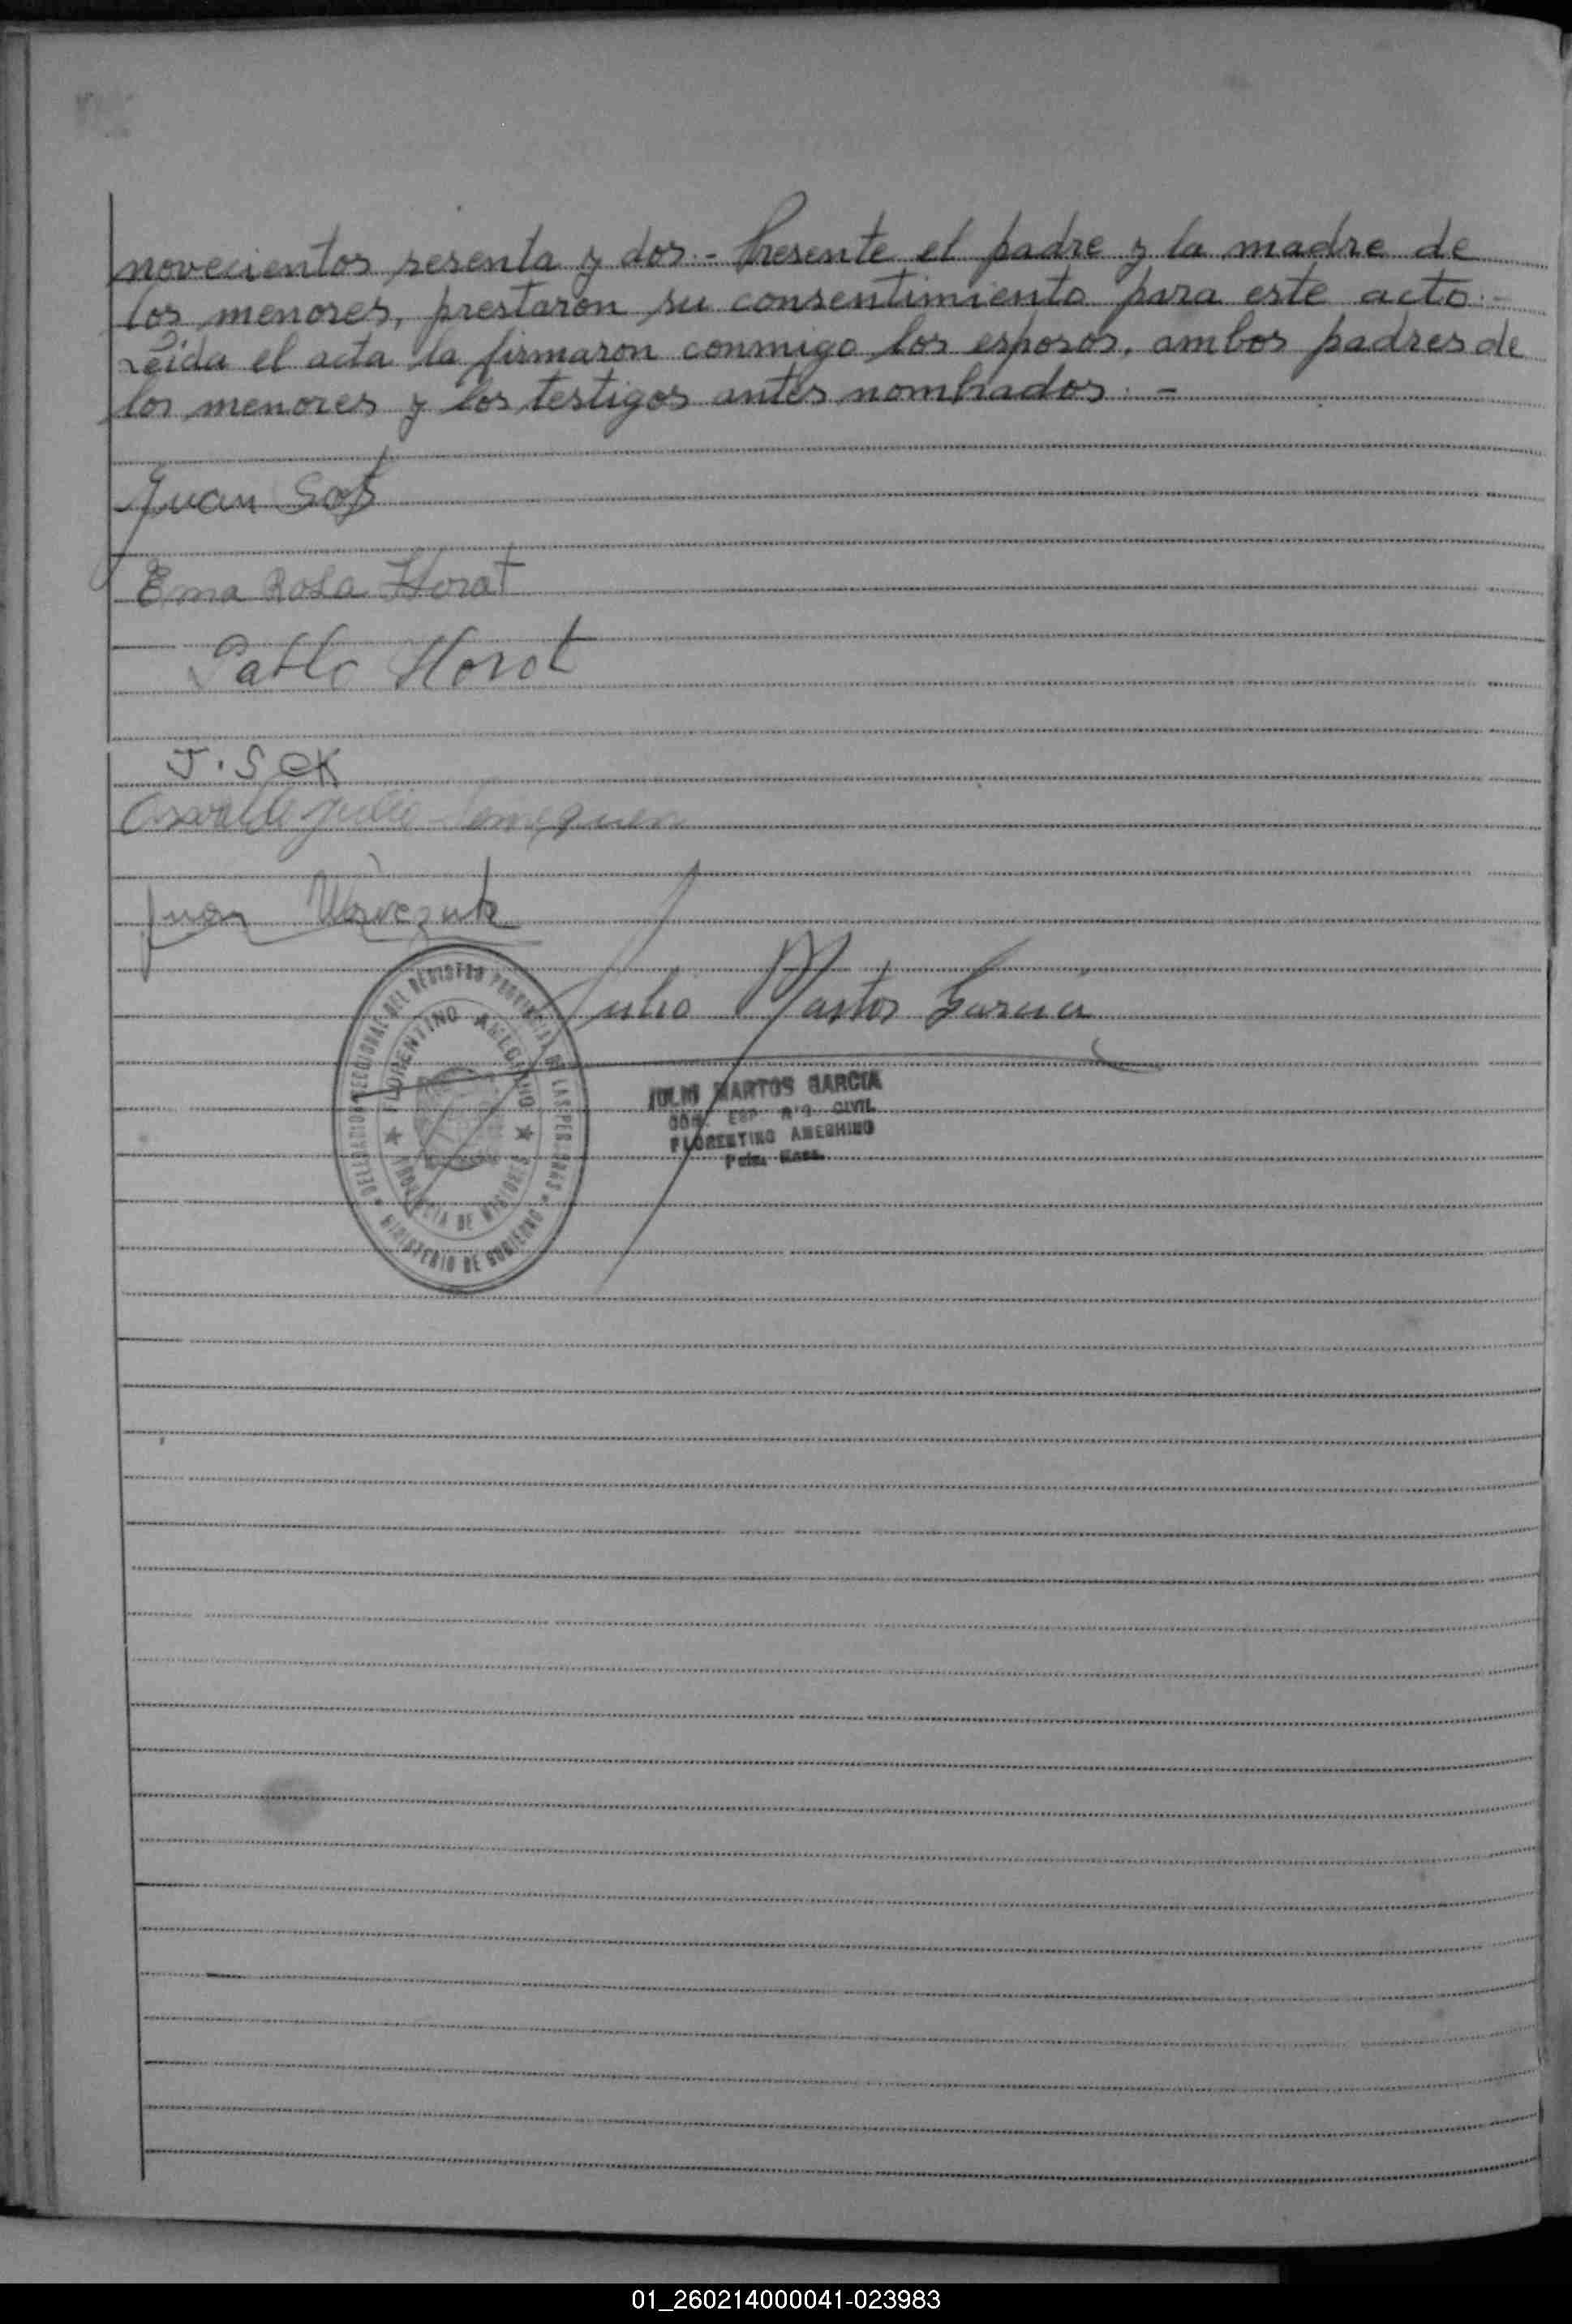 novecientos sesenta y dos.- Presente el padre y la madre de
los menores, prestaron su consentimiento para este acto.-
Leída el acta la firmaron conmigo los esposos, ambos padres de
los menores y los testigos antes nombrados.-
Juan
Ema Rosa Horat
Pablo Horat
J. Sek
Osvaldo Julio
Juan
Julio Martos Garcia
DELEGACION SECCIONAL DEL REGISTRO PROVINCIAL DE LAS PERSONAS
FLORENTINO AMEGHINO
PROVINCIA DE MISIONES
MINISTERIO DE GOBIERNO
JULIO MARTOS GARCIA
FLORENTINO AMEGHINO
01_260214000041-023983